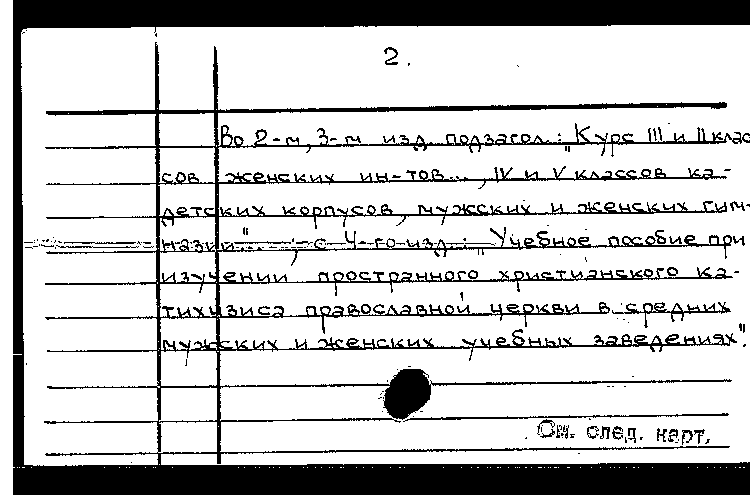 2.
Во 2-м, 3-м изд. подзагол.: „Курс III и II клас
сов женских ин-тов..., IV и V классов ка-
детских корпусов, мужских и женских гим-
назий"... ; с 4-го изд.: „Учебное пособие при
изучении пространного христианского ка-
тихизиса православной церкви в средних
мужских и женских учебных заведениях".
См. след. карт.